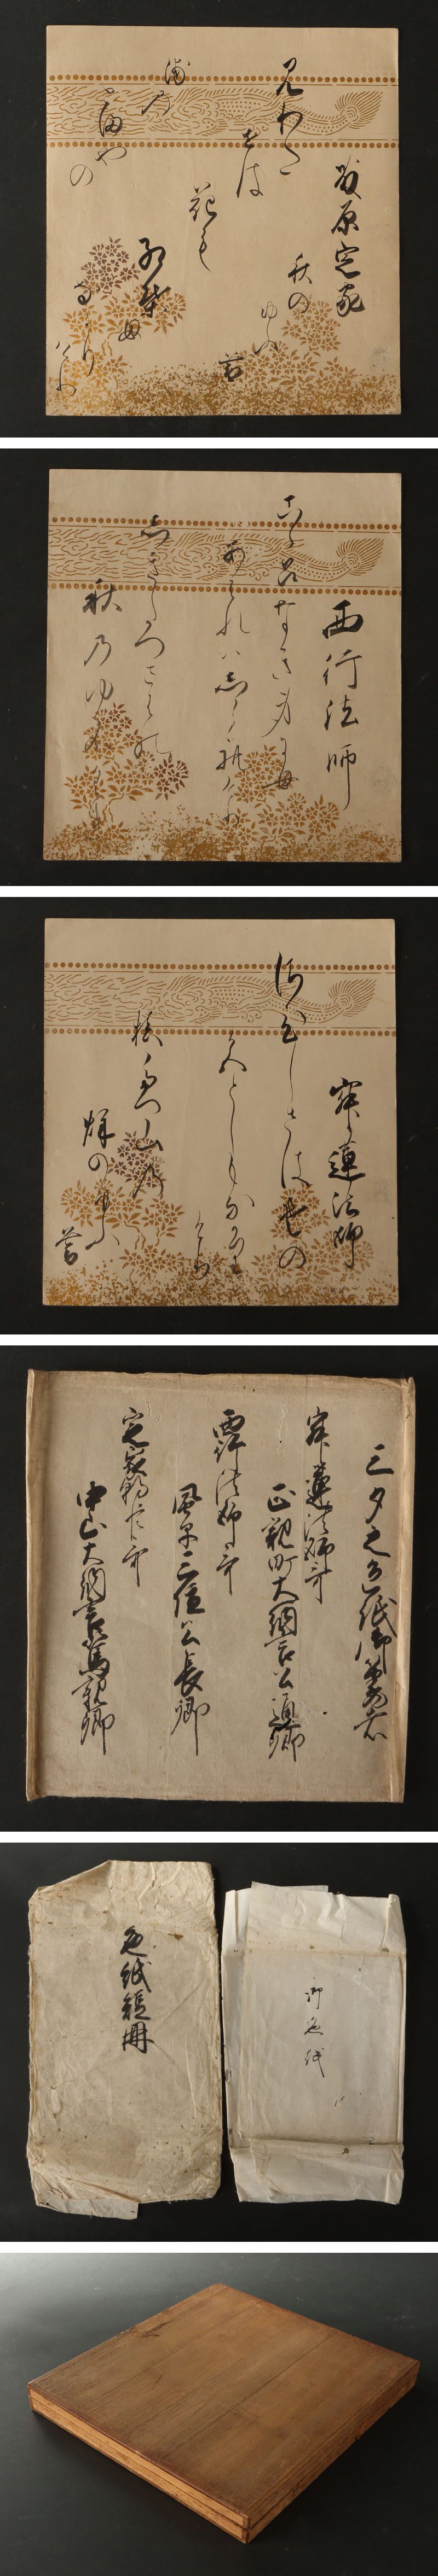 藤原定家
見わた
せは
花も
紅葉も
なかりけり
浦の
とまやの
秋の
ゆふ暮
西行法師
こゝろなき身にも
あはれはしられけり
しきたつさはの
秋乃ゆふくれ
寂蓮法師
さひしさはその
色としもなかり
けり
槙たつ山の
秋の夕
暮
三夕之色紙御筆者
寂蓮法師哥
正親町大納言公通卿
西行法師哥
風早三位公長卿
定家卿哥
中山大納言篤親卿
色紙短冊
御色紙